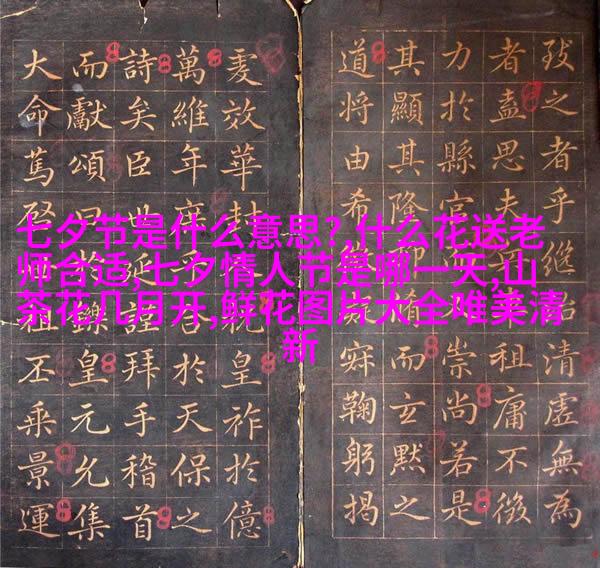 七夕节是什么意思?,什么花送老
师合适,七夕情人节是哪一天,山
茶花几月开,鲜花图片大全唯美清
新
之者乎清虛無為
者盡思夫祖庸不微
力於縣宮崇尚若是
其顯其隆而玄默之
道將由希鞠躬揭
效華封祝皇祚於億
萬維年於天保之
詩矣臣謹拜手稽首
而獻頌曰於鑠皇元允集
大命篤啓祖丕乘景運